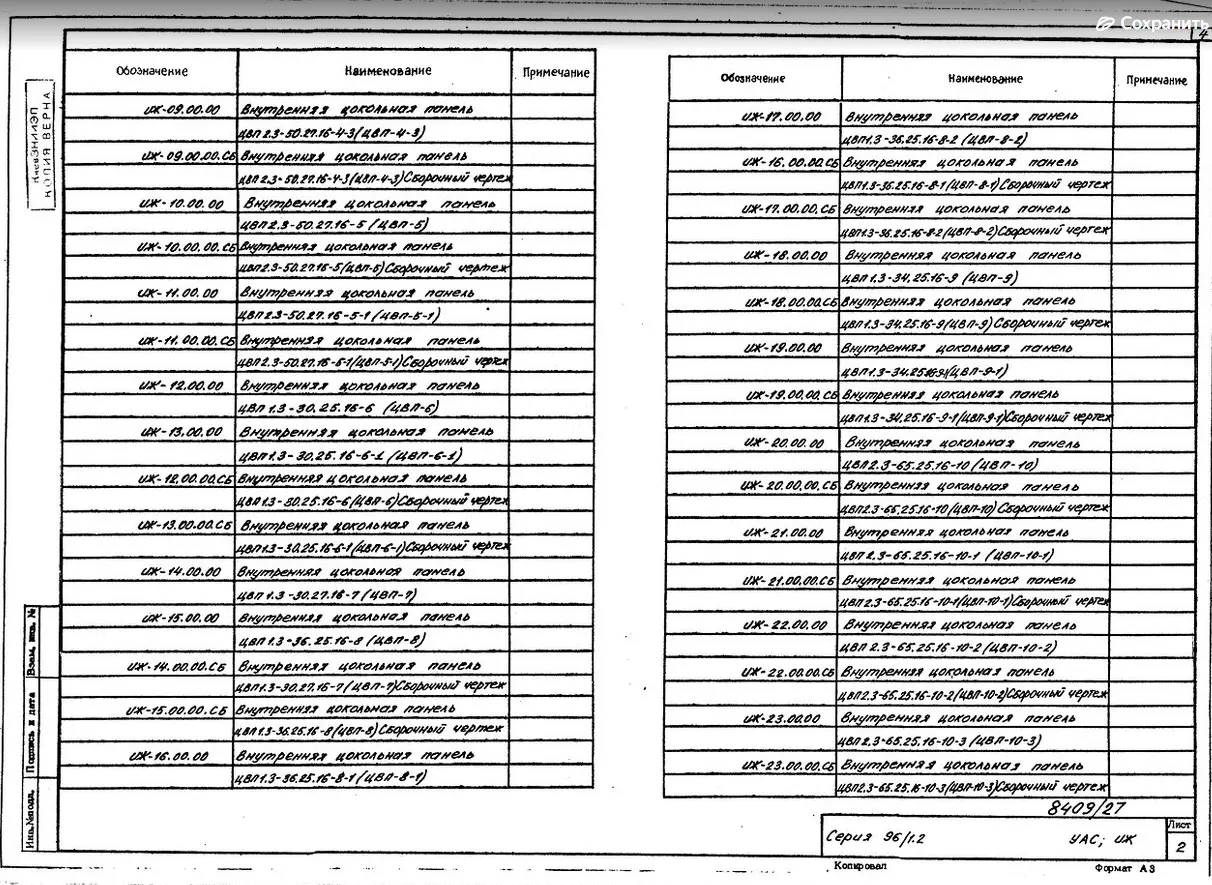 Сохранить
4
Обозначение Наименование Примечание
ИЖ-09.00.00 Внутренняя цокольная панель
ЦВП2.3-50.27.16-4-3(ЦВП-4-3)
ИЖ-09.00.00.СБ Внутренняя цокольная панель
ЦВП2.3-50.27.16-4-3(ЦВП-4-3)Сборочный чертеж
ИЖ-10.00.00 Внутренняя цокольная панель
ЦВП2.3-50.27.16-5 (ЦВП-5)
ИЖ-10.00.00.СБ Внутренняя цокольная панель
ЦВП2.3-50.27.16-5(ЦВП-5)Сборочный чертеж
ИЖ-11.00.00 Внутренняя цокольная панель
ЦВП2.3-50.27.16-5-1(ЦВП-5-1)
ИЖ-11.00.00.СБ Внутренняя цокольная панель
ЦВП2.3-50.27.16-5-1(ЦВП-5-1)Сборочный чертеж
ИЖ-12.00.00 Внутренняя цокольная панель
ЦВП1.3-30.25.16-6 (ЦВП-6)
ИЖ-13.00.00 Внутренняя цокольная панель
ЦВП1.3-30.25.16-6-1 (ЦВП-6-1)
ИЖ-12.00.00.СБ Внутренняя цокольная панель
ЦВП1.3-30.25.16-6(ЦВП-6)Сборочный чертеж
ИЖ-13.00.00.СБ Внутренняя цокольная панель
ЦВП1.3-30.25.16-6-1(ЦВП-6-1)Сборочный чертеж
ИЖ-14.00.00 Внутренняя цокольная панель
ЦВП1.3-30.27.16-7 (ЦВП-7)
ИЖ-15.00.00 Внутренняя цокольная панель
ЦВП1.3-36.25.16-8 (ЦВП-8)
ИЖ-14.00.00.СБ Внутренняя цокольная панель
ЦВП1.3-30.27.16-7(ЦВП-7)Сборочный чертеж
ИЖ-15.00.00.СБ Внутренняя цокольная панель
ЦВП1.3-36.25.16-8(ЦВП-8)Сборочный чертеж
ИЖ-16.00.00 Внутренняя цокольная панель
ЦВП1.3-36.25.16-8-1(ЦВП-8-1)
Обозначение Наименование Примечание
ИЖ-17.00.00 Внутренняя цокольная панель
ЦВП1.3-36.25.16-8-2 (ЦВП-8-2)
ИЖ-16.00.00.СБ Внутренняя цокольная панель
ЦВП1.3-36.25.16-8-1(ЦВП-8-1)Сборочный чертеж
ИЖ-17.00.00.СБ Внутренняя цокольная панель
ЦВП1.3-36.25.16-8-2(ЦВП-8-2)Сборочный чертеж
ИЖ-18.00.00 Внутренняя цокольная панель
ЦВП1.3-34.25.16-9 (ЦВП-9)
ИЖ-18.00.00.СБ Внутренняя цокольная панель
ЦВП1.3-34.25.16-9(ЦВП-9) Сборочный чертеж
ИЖ-19.00.00 Внутренняя цокольная панель
ЦВП1.3-34.25.16-9-1(ЦВП-9-1)
ИЖ-19.00.00.СБ Внутренняя цокольная панель
ЦВП1.3-34.25.16-9-1(ЦВП-9-1)Сборочный чертеж
ИЖ-20.00.00 Внутренняя цокольная панель
ЦВП2.3-65.25.16-10(ЦВП-10)
ИЖ-20.00.00.СБ Внутренняя цокольная панель
ЦВП2.3-65.25.16-10(ЦВП-10)Сборочный чертеж
ИЖ-21.00.00 Внутренняя цокольная панель
ЦВП2.3-65.25.16-10-1 (ЦВП-10-1)
ИЖ-21.00.00.СБ Внутренняя цокольная панель
ЦВП2.3-65.25.16-10-1(ЦВП-10-1)Сборочный чертеж
ИЖ-22.00.00 Внутренняя цокольная панель
ЦВП2.3-65.25.16-10-2(ЦВП-10-2)
ИЖ-22.00.00.СБ Внутренняя цокольная панель
ЦВП2.3-65.25.16-10-2(ЦВП-10-2)Сборочный чертеж
ИЖ-23.00.00 Внутренняя цокольная панель
ЦВП2.3-65.25.16-10-3 (ЦВП-10-3)
ИЖ-23.00.00.СБ Внутренняя цокольная панель
ЦВП2.3-65.25.16-10-3(ЦВП-10-3)Сборочный чертеж
КиевЗНИИЭП
КОПИЯ ВЕРНА
Взам. инв. №
Подпись и дата
Инв.№подл.
8409/27
Серия 96/1.2 УАС; ИЖ
Лист
2
Копировал Формат А3